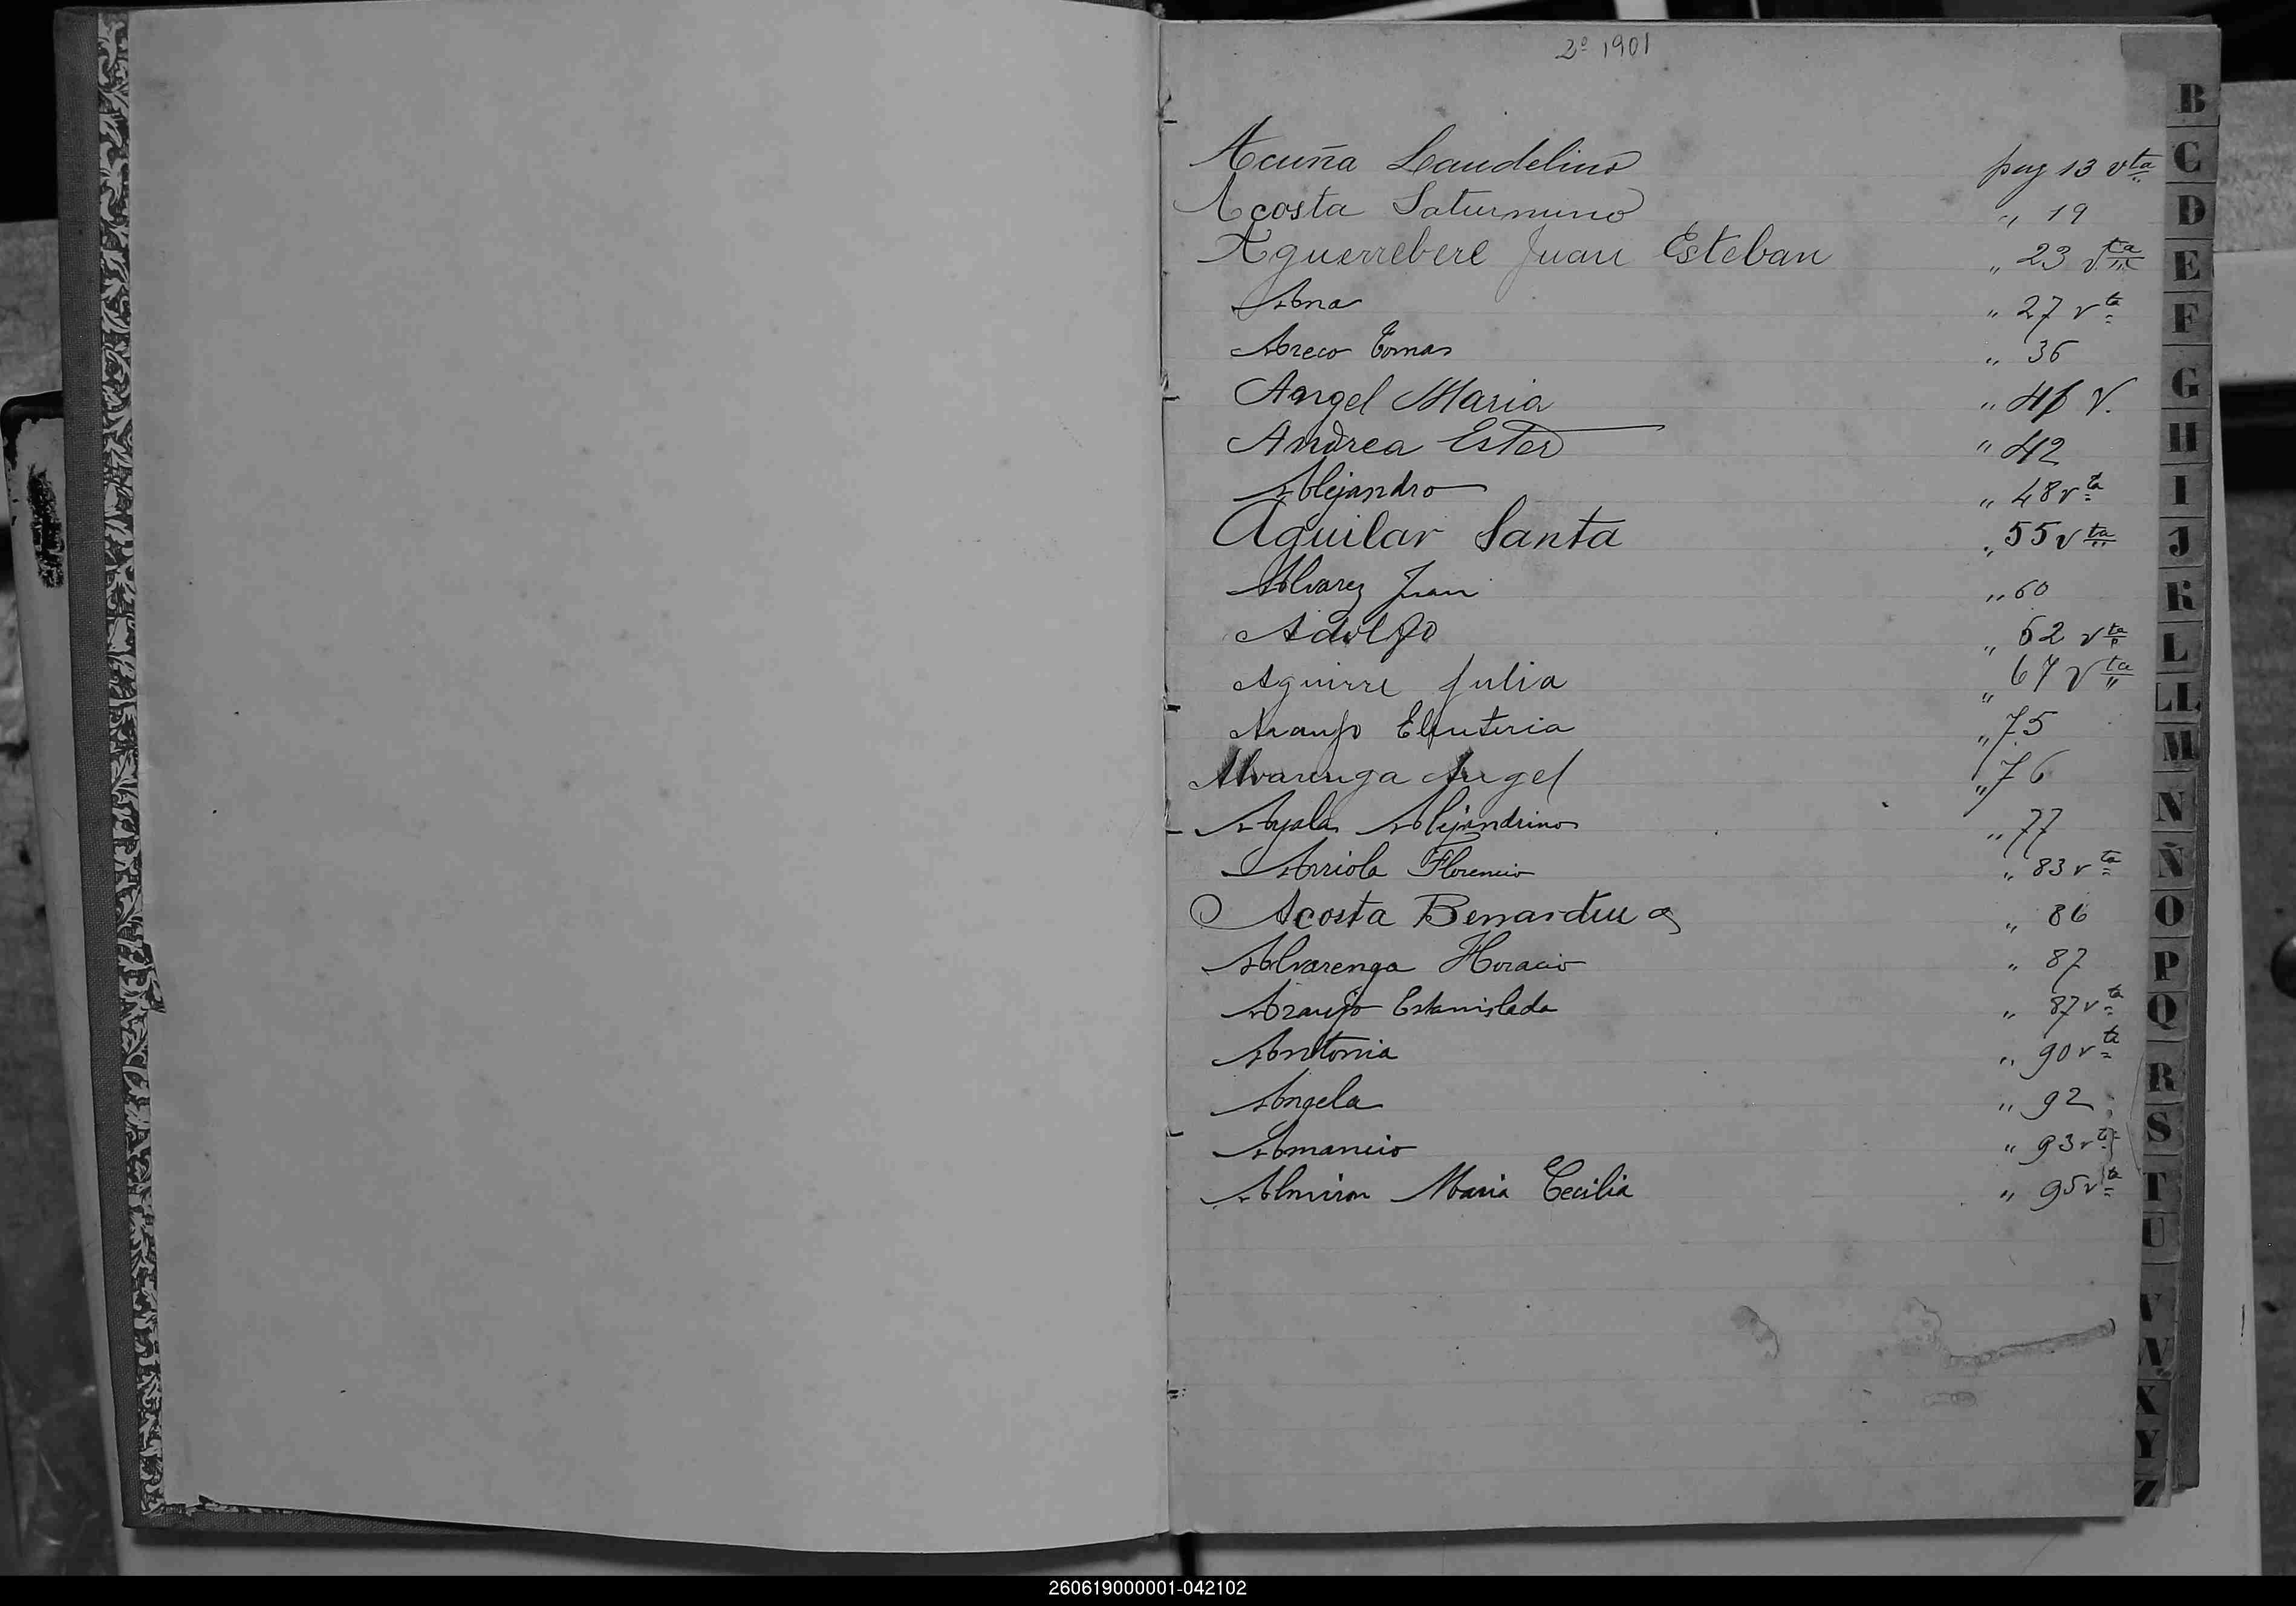 2º 1901
Acuña Laudelino pag 13 vta
Acosta Saturnino " 19
Aguerrebere Juan Esteban " 23 vta
Ana " 27 vta
Areco Tomas " 36
Angel Maria " 41 v.
Andrea Ester " 42
Alejandro " 48 vta
Aguilar Santa " 55 vta
Alvarez Juan " 60
Adolfo " 62 vta
Aguirre Julia " 67 vta
Araujo Eleuteria " 75
Alvarenga Angel " 76
Ayala Alejandrino " 77
Arriola Florencio " 83 vta
Acosta Bernardina " 86
Alvarenga Horacio " 87
Araujo Estanislada " 87 vta
Antonia " 90 vta
Angela " 92
Amancio " 93 vta
Almiron Maria Cecilia " 95 vta
B
C
D
E
F
G
H
I
J
K
L
LL
M
N
Ñ
O
P
Q
R
S
T
U
V
W
X
Y
Z
260619000001-042102